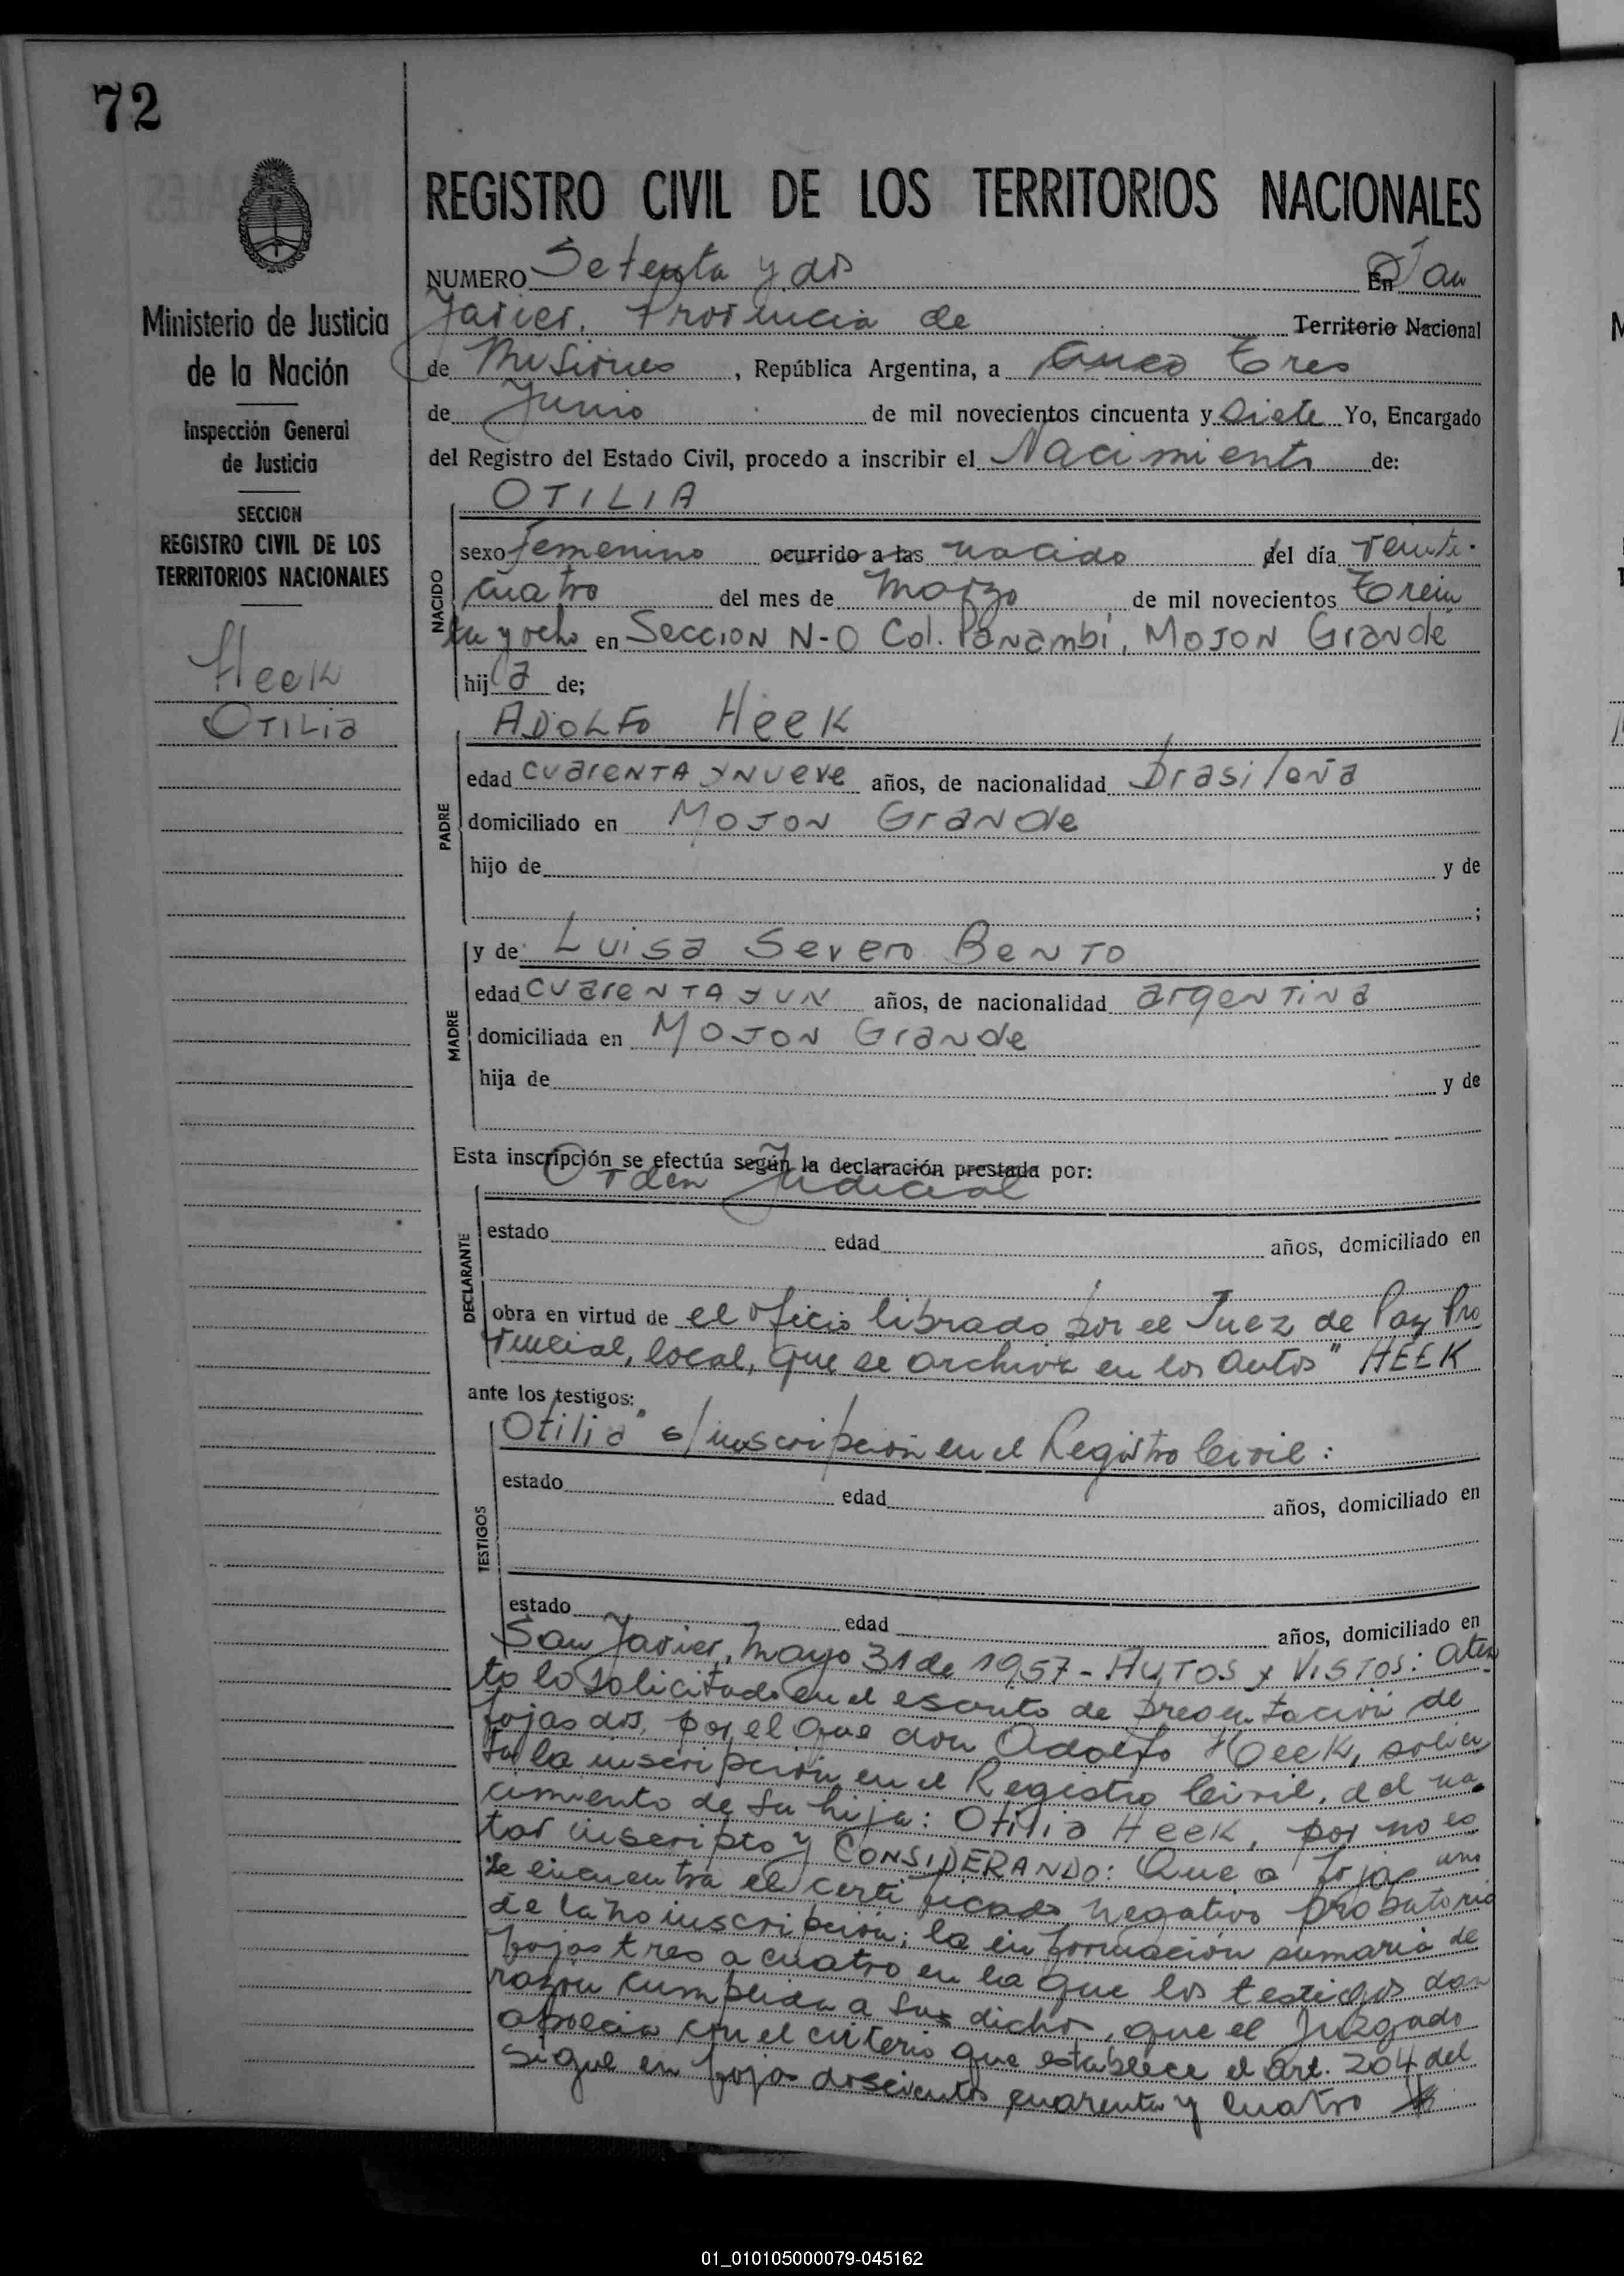 72
REGISTRO CIVIL DE LOS TERRITORIOS NACIONALES
NUMERO Setenta y dos En San
Javier, Provincia de Territorio Nacional
de Misiones, República Argentina, a Tres
de Junio de mil novecientos cincuenta y Siete Yo, Encargado
del Registro del Estado Civil, procedo a inscribir el Nacimiento de:
Ministerio de Justicia
de la Nación
Inspección General
de Justicia
SECCION
REGISTRO CIVIL DE LOS
TERRITORIOS NACIONALES
Heek
OTILIA
NACIDO
OTILIA
sexo femenino ocurrido a las nacido del día veinti-
cuatro del mes de Marzo de mil novecientos Trein
ta y ocho en SECCION N-O Col. Panambí, MOJON Grande
hija de;
PADRE
ADOLFO HEEK
edad cuarenta y nueve años, de nacionalidad brasileña
domiciliado en MOJON Grande
hijo de y de
;
MADRE
y de Luisa Severo Bento
edad cuarenta y un años, de nacionalidad argentina
domiciliada en MOJON Grande
hija de y de
Esta inscripción se efectúa según la declaración prestada por:
DECLARANTE
Orden Judicial
estado edad años, domiciliado en
obra en virtud de el oficio librado por el Juez de Paz Pro
vincial, local, que se archiva en los autos "HEEK
ante los testigos:
TESTIGOS
Otilia" s/inscripción en el Registro Civil:
estado edad años, domiciliado en
estado edad años, domiciliado en
San Javier, Mayo 31 de 1957 - AUTOS y VISTOS: Aten
to lo solicitado en el escrito de presentación de
fojas dos, por el que don Adolfo Heek, solici
ta la inscripción en el Registro Civil, del na
cimiento de su hija: Otilia Heek, por no es
tar inscripto y CONSIDERANDO: Que a fojas uno
se encuentra el certificado negativo probatorio
de la no inscripción; la información sumaria de
fojas tres a cuatro en la que los testigos dan
razón cumplida a sus dichos, que el Juzgado
aprecia con el criterio que establece el art. 204 del
Sigue en fojas doscientos cuarenta y cuatro
01_010105000079-045162